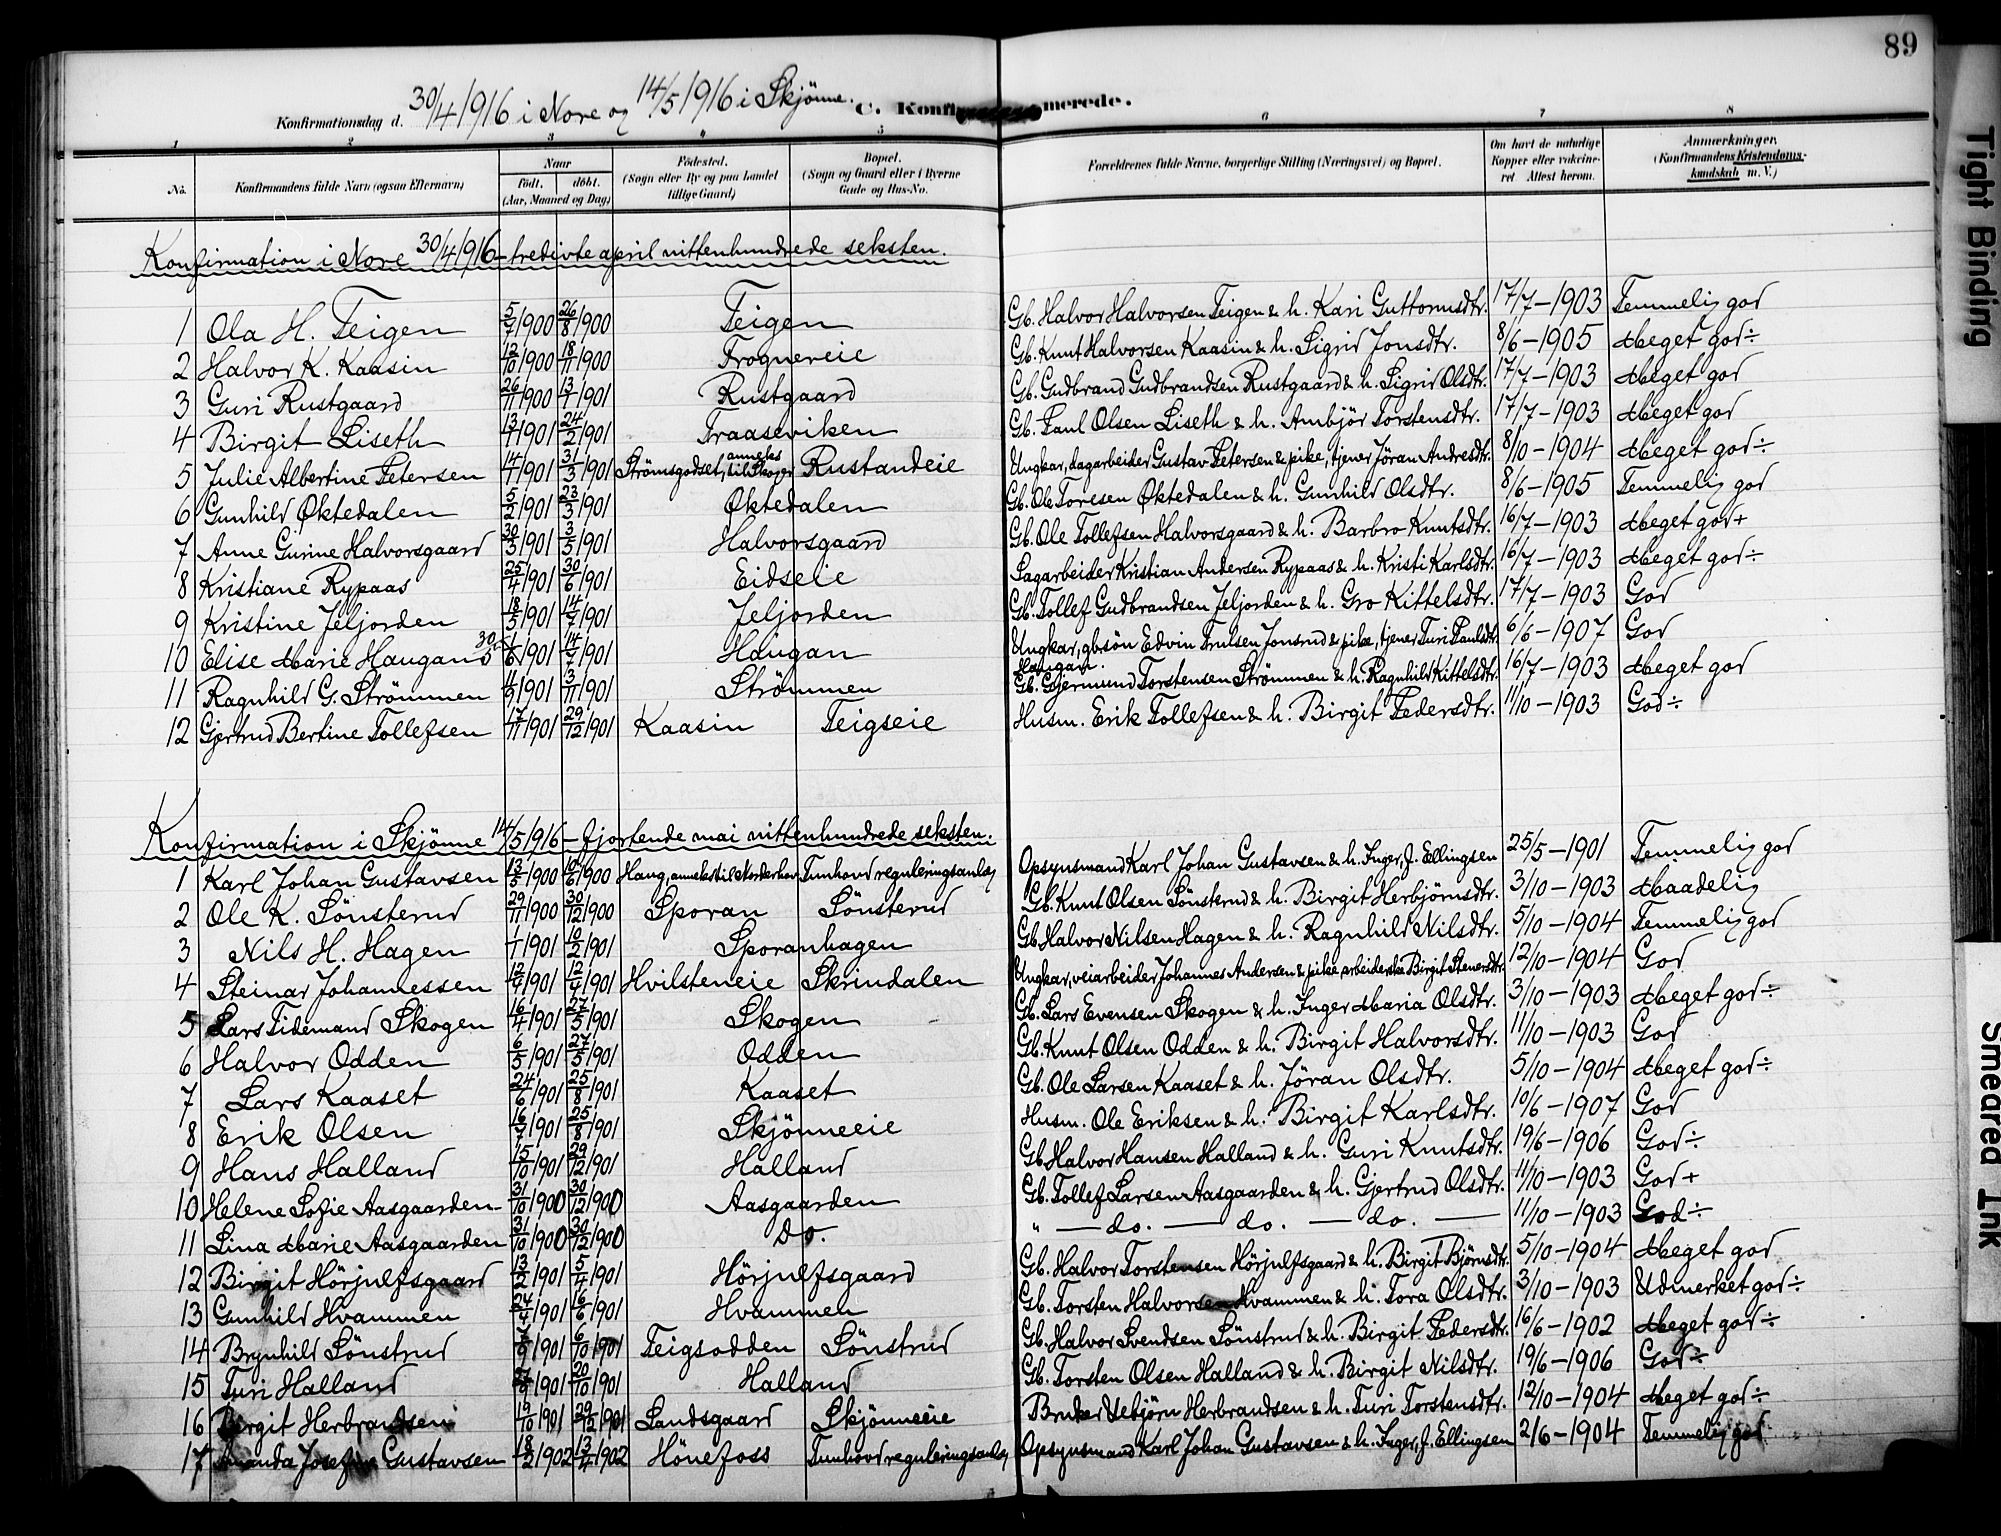 89
Konfirmationsdag d. 30/4 1916 i Nore og 14/5 1916 i Skjönne. C. Konfirmerede.
1 2 3 4 5 6 7 8
No. Konfirmandens fulde Navn (ogsaa Efternavn) Naar födt. döbt. (Aar, Maaned og Dag) Födested. (Sogn eller By og paa Landet tillige Gaard) Bopæl. (Sogn og Gaard eller i Byerne Gade og Hus-No. Forældrenes fulde Navne, borgerlige Stilling (Næringsvei) og Bopæl. Om havt de naturlige Kopper eller vaksineret Attest herom. Anmærkninger. (Konfirmandens Kristendomskundskab m. V.)
Konfirmation i Nore 30/4 1916 - tredivte april nittenhundrede seksten.
1 Ola H. Teigen 5/7 1900 26/8 1900 Teigen Gb. Halvor Halvorsen Teigen & h. Kari Guttormsdtr. 17/7 - 1903 Temmelig god
2 Halvor K. Kaasin 12/10 1900 18/11 1900 Frognereie Gb. Knut Halvorsen Kaasin & h. Sigrid Jonsdtr. 8/6 - 1905 Meget god ÷
3 Guri Rustgaard 26/11 1900 13/1 1901 Rustgaard Gb. Gudbrand Gudbrandsen Rustgaard & h. Sigrid Olsdtr. 17/7 - 1903 Meget god
4 Birgit Liseth 13/1 1901 24/2 1901 Traaseviken Gb. Paul Olsen Liseth & h. Ambjör Torstensdtr. 17/7 - 1903 Meget god
5 Julie Albertine Petersen 14/1 1901 31/3 1901 Strömsgodset, anneks til Skoger Rustandeie Ungkar, dagarbeider Gustav Petersen & pike, tjener Jöran Andresdtr. 8/10 - 1904 Meget god ÷
6 Gunhild Øktedalen 5/2 1901 23/3 1901 Øktedalen Gb. Ole Toresen Øktedalen & h. Gunhild Olsdtr. 8/6 - 1905 Temmelig god
7 Anne Gurine Halvorsgaard 30/3 1901 3/5 1901 Halvorsgaard Gb. Ole Tollefsen Halvorsgaard & h. Barbro Knutsdtr. 16/7 - 1903 Meget god +
8 Kristiane Rypaas 25/4 1901 30/6 1901 Eidseie Sagarbeider Kristian Andersen Rypaas & h. Kristi Karlsdtr. 16/7 - 1903 Meget god ÷
9 Kristine Jeljorden 18/5 1901 14/7 1901 Jeljorden Gb. Tollef Gudbrandsen Jeljorden & h. Gro Kittelsdtr. 17/7 - 1903 God
10 Elise Marie Haugan 30/5 1/6 1901 14/7 1901 Haugan Ungkar, gbsön Edvin Trulsen Jonsrud & pike, tjener Turi Paulsdtr. Haugan. 6/6 - 1907 God
11 Ragnhild G. Strömmen 4/9 1901 3/11 1901 Strömmen Gb. Gjermund Torstensen Strömmen & h. Ragnhild Kittelsdtr. 16/7 - 1903 Meget god
12 Gjertrud Bertine Tollefsen 17/11 1901 29/12 1901 Kaasin Teigseie Husm. Erik Tollefsen & h. Birgit Pedersdtr. 11/10 - 1903 God ÷
Konfirmation i Skjönne 14/5 1916 - fjortende mai nittenhundrede seksten.
1 Karl Johan Gustavsen 13/5 1900 10/6 1900 Haug, anneks til Norderhov Tunhovd reguleringsanlæg Opsynsmand Karl Johan Gustavsen & h. Inger, f. Ellingsen 25/5 - 1901 Temmelig god
2 Ole K. Sönsterud 29/11 1900 30/12 1900 Sporan Sönsterud Gb. Knut Olsen Sönsterud & h. Birgit Herbjörnsdtr. 3/10 - 1903 Maadelig
3 Nils H. Hagen 1/1 1901 10/2 1901 Sporanhagen Gb. Halvor Nilsen Hagen & h. Ragnhild Nilsdtr. 5/10 - 1904 Temmelig god
4 Steinar Johannessen 1901 12/4 1901 Hvilsteneie Skrindalen Ungkar, veiarbeider Johannes Andersen & pike, arbeiderske Birgit Stenersdtr. 12/10 - 1904 God
5 Lars Tidemand Skogen 16/4 1901 27/5 1901 Skogen Gb. Lars Evensen Skogen & h. Inger Maria Olsdtr. 3/10 - 1903 Meget god ÷
6 Halvor Odden 6/5 1901 27/5 1901 Odden Gb. Knut Olsen Odden & h. Birgit Halvorsdtr. 11/10 - 1903 God
7 Lars Kaaset 24/6 1901 25/8 1901 Kaaset Gb. Ole Larsen Kaaset & h. Jöran Olsdtr. 5/10 - 1904 Meget god ÷
8 Erik Olsen 16/7 1901 25/8 1901 Skjönneeie Husm. Ole Eriksen & h. Birgit Karlsdtr. 10/6 - 1907 God
9 Hans Halland 15/10 1901 29/12 1901 Halland Gb. Halvor Hansen Halland & h. Guri Knutsdtr. 19/6 - 1906 God ÷
10 Helene Sofie Aasgaarden 31/10 1900 30/12 1900 Aasgaarden Gb. Tollef Larsen Aasgaarden & h. Gjertrud Olsdtr. 11/10 - 1903 God +
11 Lina Marie Aasgaarden 31/10 1900 30/12 1900 Do. " — do. — do. — do. — 11/10 - 1903 God ÷
12 Birgit Hörjulfsgaard 13/2 1901 5/4 1901 Hörjulfsgaard Gb. Halvor Torstensen Hörjulfsgaard & h. Birgit Björnsdtr. 5/10 - 1904 Meget god
13 Gunhild Hvammen 24/4 1901 16/6 1901 Hvammen Gb. Torsten Halvorsen Hvammen & h. Tora Olsdtr. 3/10 - 1903 Udmerket god ÷
14 Brynhild Sönstrud 7/9 1901 6/10 1901 Teigsodden Sönstrud Gb. Halvor Svendsen Sönstrud & h. Birgit Pedersdtr. 16/6 - 1902 Meget god ÷
15 Turi Halland 27/9 1901 20/10 1901 Halland Gb. Torsten Olsen Halland & h. Birgit Nilsdtr. 19/6 - 1906 God ÷
16 Birgit Herbrandsen 19/10 1901 29/12 1901 Landsgaard Skjönneeie Bruker Herbrandsen & h. Turi Torstensdtr. 12/10 - 1904 Meget god ÷
17 Amanda Josefine Gustavsen 18/2 1902 13/4 1902 Hönefoss Tunhovd reguleringsanlæg Opsynsmand Karl Johan Gustavsen & h. Inger, f. Ellingsen 2/6 - 1904 Temmelig god
Tight Binding
Smeared Ink